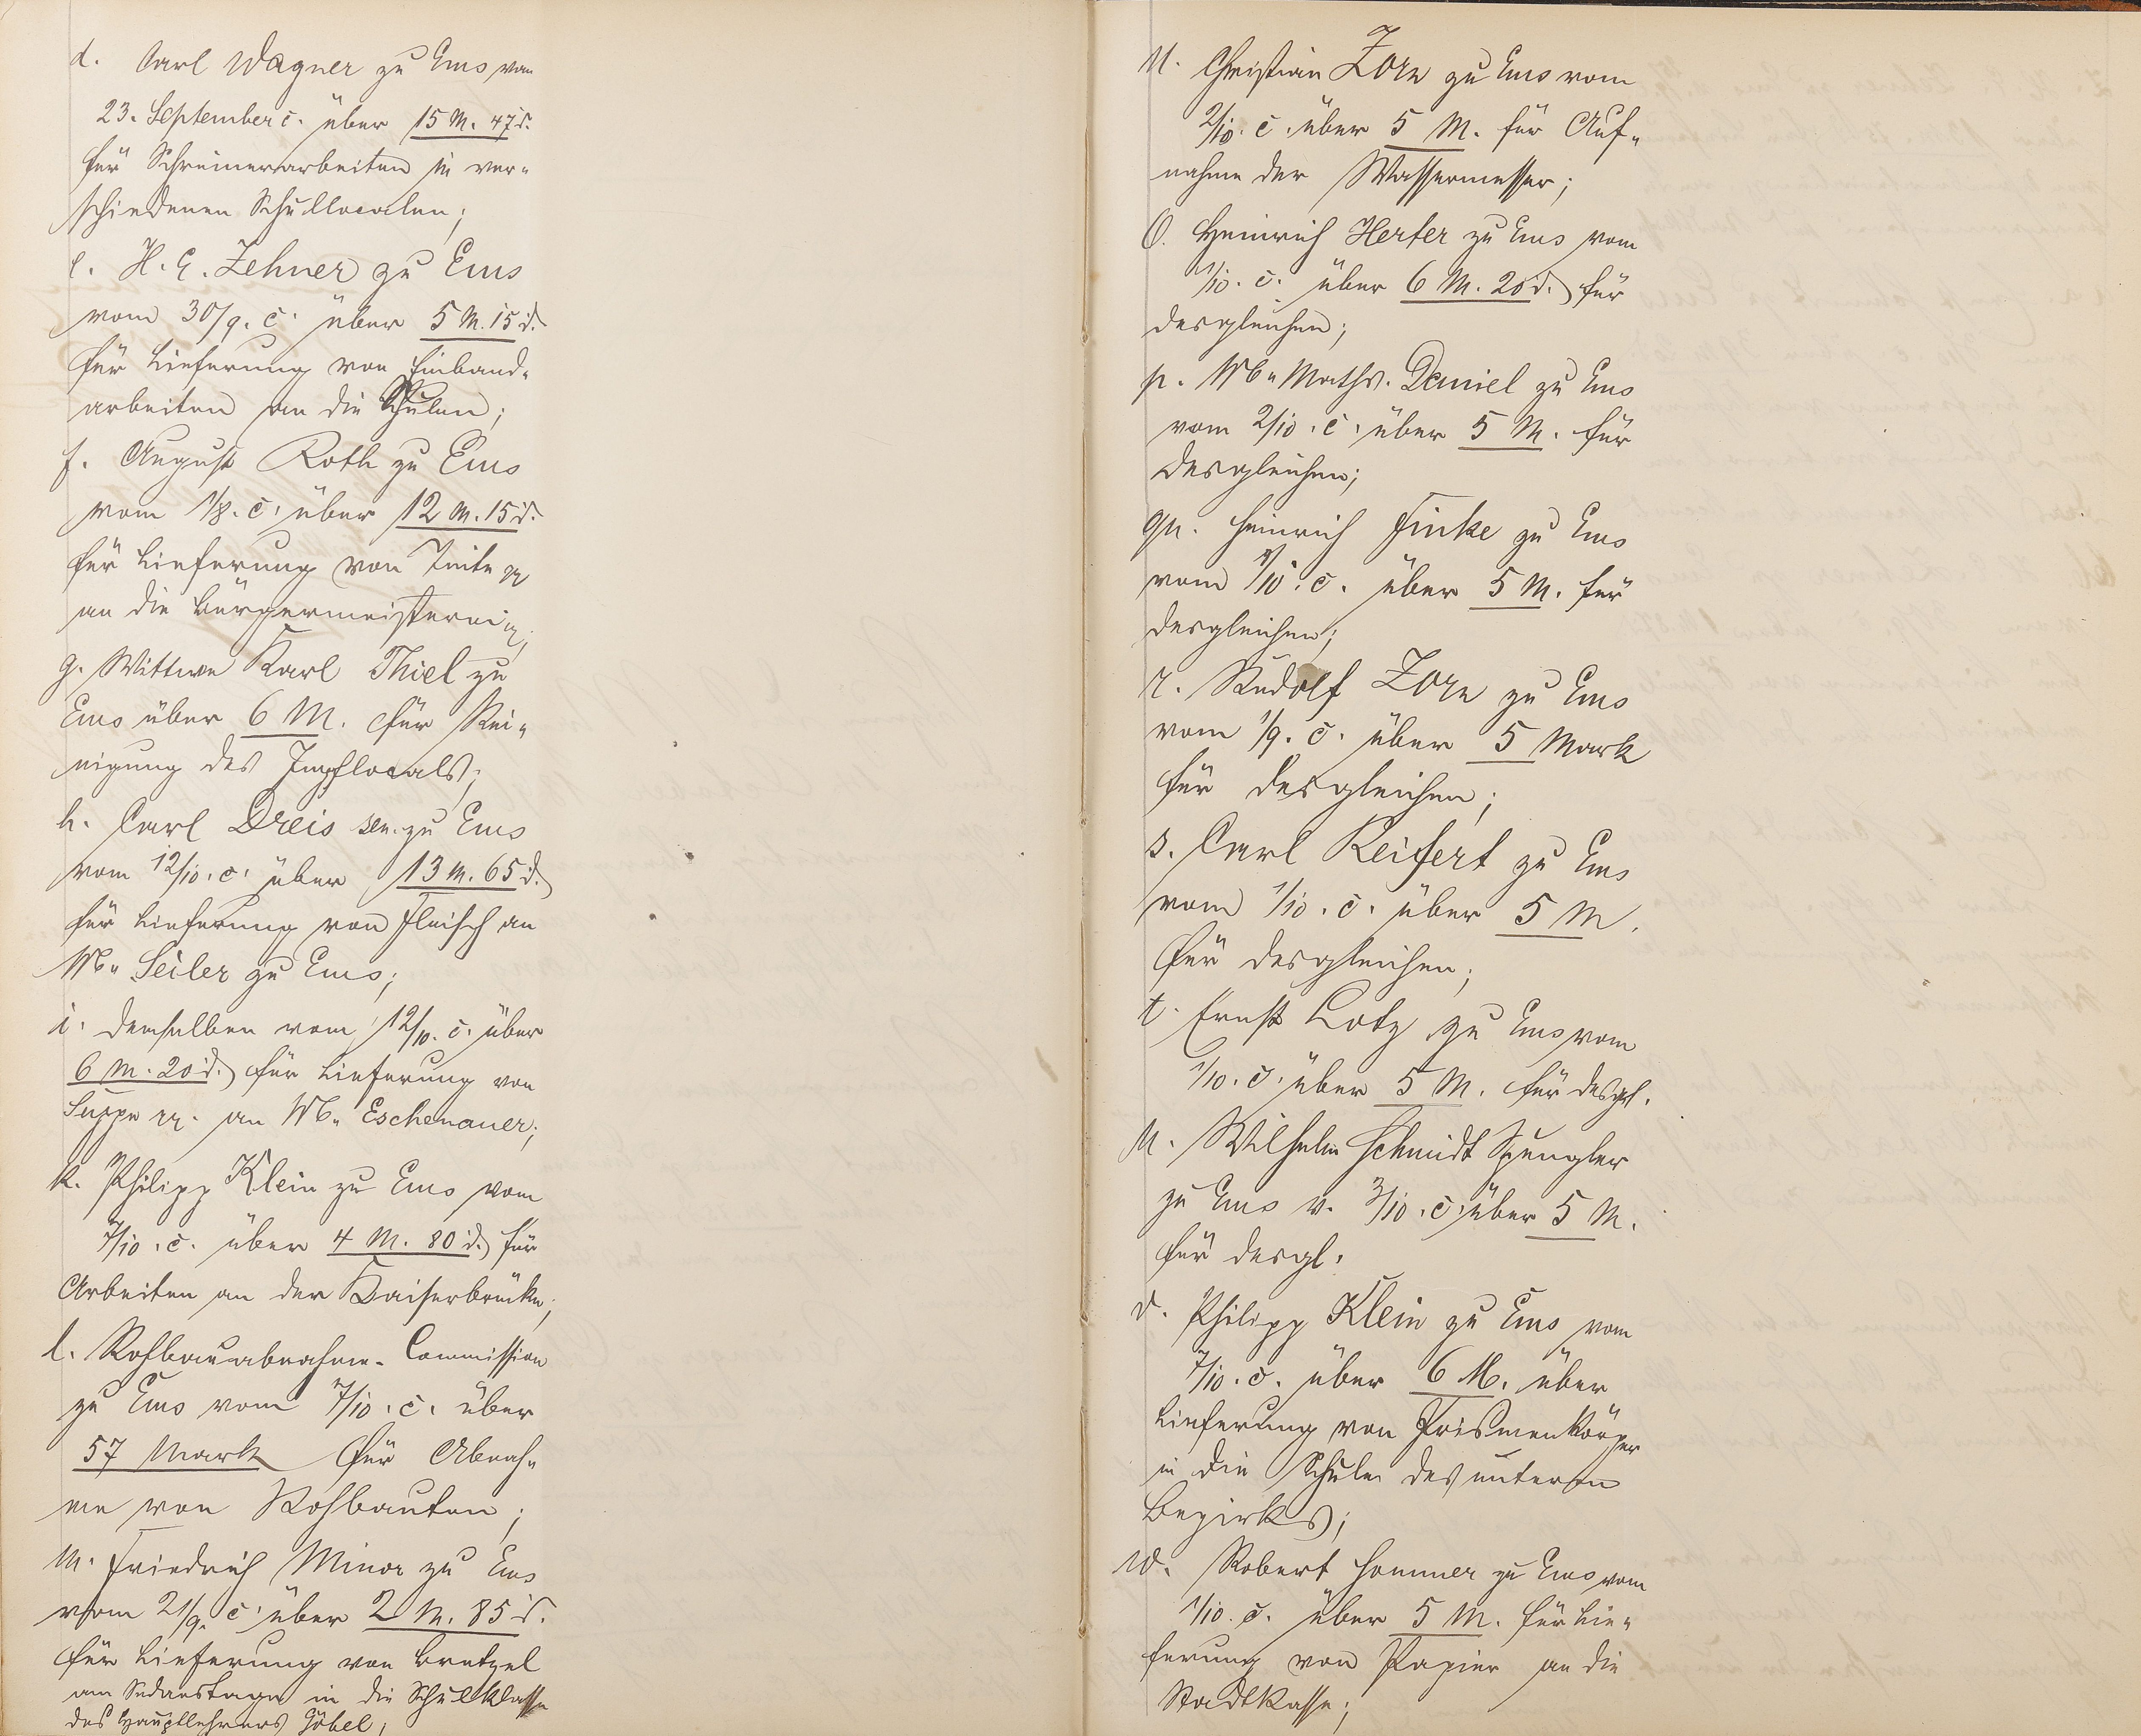 d. Carl Wagner zu Ems vom
23. September c. über 15 M. 47 d.
für Schreinerarbeiten in ver-
schiedenen Schullocalen;
e. H. C. Zehner zu Ems
vom 30/9. c. über 5 M. 15 d.
für Lieferung von Einband-
arbeiten an die Schulen;
f. August Roth zu Ems
vom 1/8. c. über 12 M. 15 d.
für Lieferung von Tinte pp
an die Bürgermeisterei;
g. Wittwe Karl Thiel zu
Ems über 6 M. für Rei-
nigung des Impflocals;
h. Carl Dreis sen. zu Ems
vom 12/10. c. über 13 M. 65 d.
für Lieferung von Fleisch an
Wb. Seiler zu Ems;
i. demselben vom 12/10. c. über
6 M. 20 d. für Lieferung von
Suppe pp. an Wb. Eschenauer;
k. Philipp Klein zu Ems vom
7/10. c. über 4 M. 80 d. für
Arbeiten an der Kaiserbrücke;
l. Rohbauabnahme-Commission
zu Ems vom 7/10. c. über
57 Mark für Abnah-
me von Rohbauten;
m. Friedrich Minor zu Ems
vom 21/9. c. über 2 M. 85 d.
für Lieferung von Bretzel
am Sedanstage in die Schulklasse
des Hauptlehrers Göbel;
n. Christian Zorn zu Ems vom
2/10. c. über 5 M. für Auf-
nahme der Wassermesser;
o. Heinrich Herfer zu Ems vom
1/10. c. über 6 M. 20 d. für
desgleichen;
p. Wb. Maths. Daniel zu Ems
vom 2/10. c. über 5 M. für
desgleichen;
q. Heinrich Finke zu Ems
vom 1/10. c. über 5 M. für
desgleichen;
r. Rudolf Zorn zu Ems
vom 1/9. c. über 5 Mark
für desgleichen;
s. Carl Reifert zu Ems
vom 1/10. c. über 5 M.
für desgleichen;
t. Ernst Lotz zu Ems vom
1/10. c. über 5 M. für desgl.
u. Wilhelm Schmidt Spengler
zu Ems v. 3/10. c. über 5 M.
für desgl.
v. Philipp Klein zu Ems vom
7/10. c. über 6 M. über
Lieferung von Prismenkörper
in die Schule des unteren
Bezirks;
w. Robert Hommer zu Ems vom
1/10. c. über 5 M. für Lie-
ferung von Papier an die
Stadtkasse;